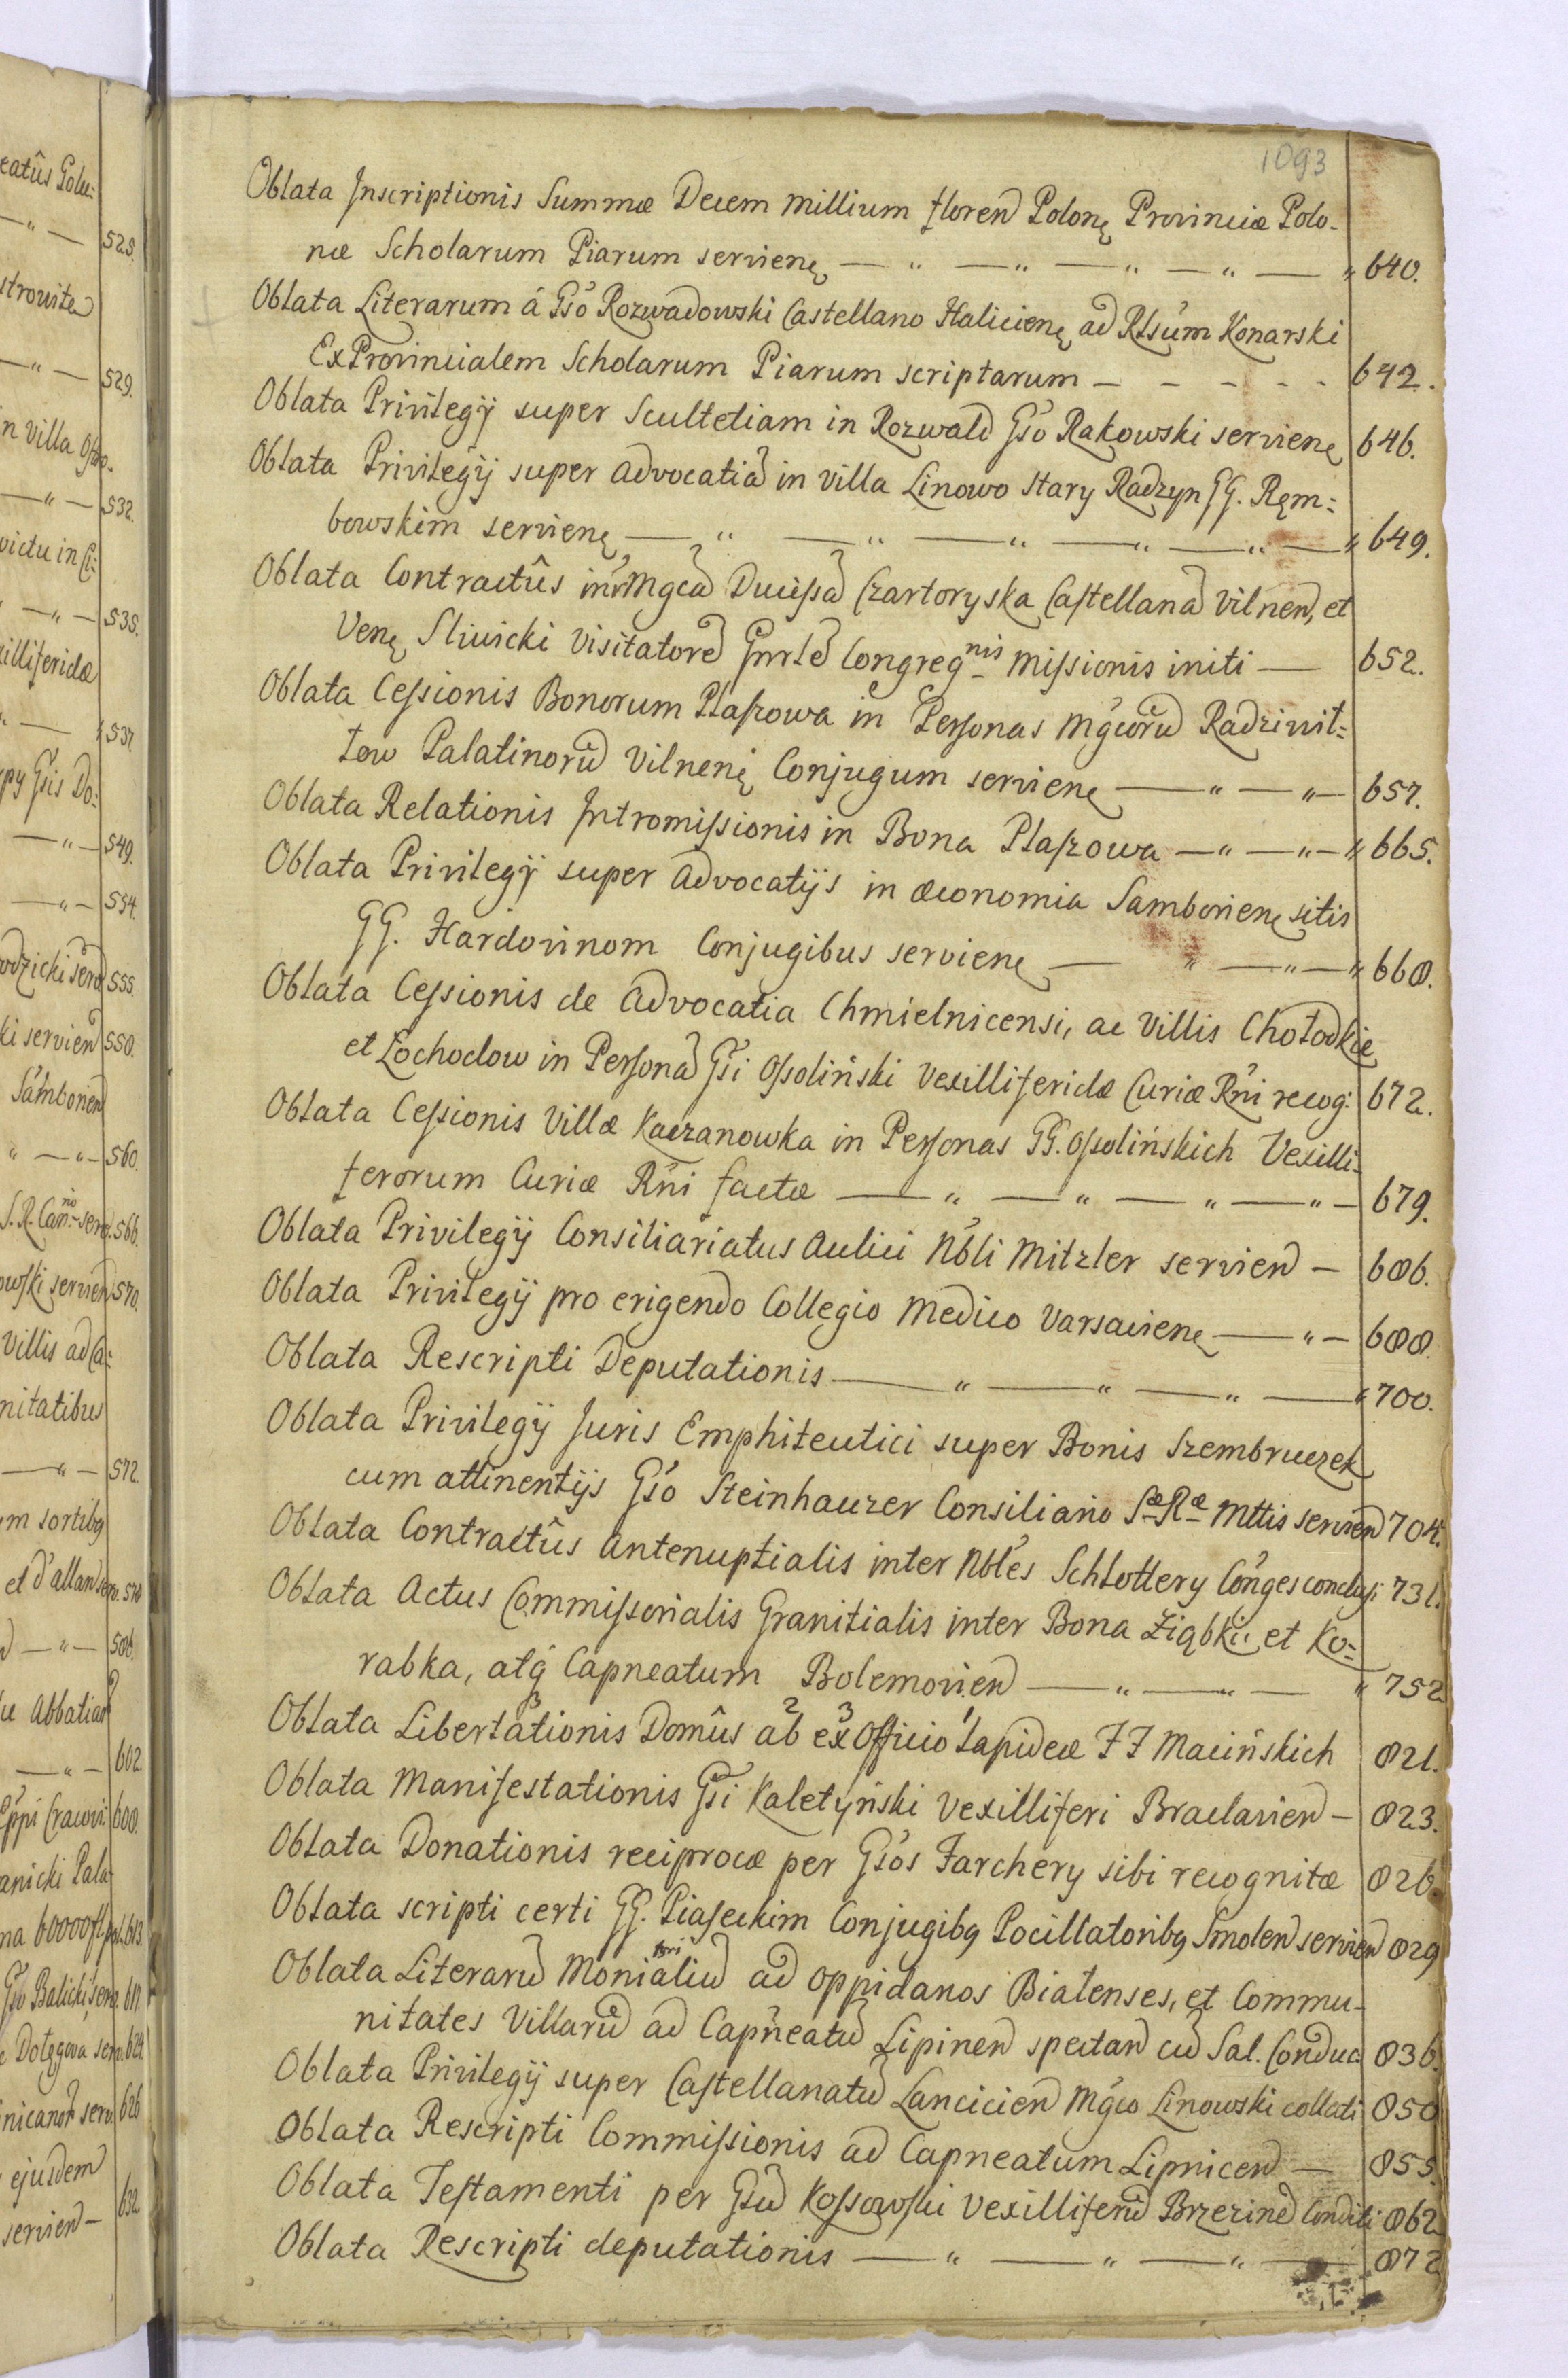 1093
Oblata Inscriptionis Summæ Decem millium floren Polonę Provinciæ Polo-
næ Scholarum Piarum servienę — " — " — " — " — " 640.
Oblata Literarum á Gsó Rozwadowski Castellano Halicienę ad Rlsúm Konarski
ExProvincialem Scholarum Piarum scriptarum — - - - - 642.
Oblata Privilegÿ super Scultetiam in Rozwald Gsó Rakowski servienę 646.
Oblata Privilegÿ super advocatia in villa Linowo Stary Radzyn GG. Ręm:
bowskim servienę — " — " — " — " — " — " 649.
Oblata Contractûs intr Mgca Ducissa Czartoryska Castellana Vilnen, et
Venę Sliwicki Visitatore Gnrle Congregnis Missionis initi — 652.
Oblata Cessionis Bonorum Płaszowa in Personas Mgcoru Radziwił:
łow Palatinorû Vilnenę Conjugum servienę — " — " — 657.
Oblata Relationis Intromissionis in Bona Płaszowa — " — " — " 665.
Oblata Privilegÿ super Advocatÿs in œconomia Samborienę sitis
GG. Hardovinom Conjugibus servienę — " — " — " 668.
Oblata Cessionis de Advocatia Chmielnicensi, ac Villis Chołodkie
et Łochodow in Persona Gsi Ossoliński Vexilliferidæ Curiæ Rñi recog: 672.
Oblata Cessionis Villæ Kaczanowka in Personas GG. Ossolińskich Vexilli-
ferorum Curiæ Rñi factæ — " — " — " — " — 679.
Oblata Privilegÿ Consiliariatus Aulici Nbli Mitzler servien — 686.
Oblata Privilegÿ pro erigendo Collegio Medico Varsavienę — " — 688.
Oblata Rescripti Deputationis — " — " — " — " 700.
Oblata Privilegÿ Juris Emphiteutici super Bonis Szembruczek
cum attinentÿs Gsó Steinhauzer Consiliario Sæ Ræ Mttis servien 704.
Oblata Contractûs Antenuptialis inter Nbles Schlottery Cónges conclusi 731.
Oblata Actus Commissorialis Granitialis inter Bona Ziąbki et Ko:
rabka, atq Capneatum Bolemovien — " — " — " 752
Oblata Libertationis Domûs ab ex Officio Lapideæ FF Macińskich 821.
3 2 3 1
Oblata Manifestationis Gsi Kaletyński Vexilliferi Braclavien — 823.
Oblata Donationis reciprocæ per Gsós Farchery sibi recognitæ 826.
Oblata scripti certi GG. Piaseckim Conjugibq Pocillatoribq Smolen servien 829
Oblata Literarû Monitorialiû ad Oppidanos Białenses, et Commu-
nitates Villarû ad Capneatû Lipinen spectan cû Sal. Conduc: 836.
Oblata Privilegÿ super Castellanatû Lancicien Mgco Linowski collati 850
Oblata Rescripti Commissionis ad Capneatum Lipnicen — 855.
Oblata Testamenti per Gsû Kossowski Vexilliferû Brzezinen Conditi 862
Oblata Rescripti deputationis — " — " — " — 872